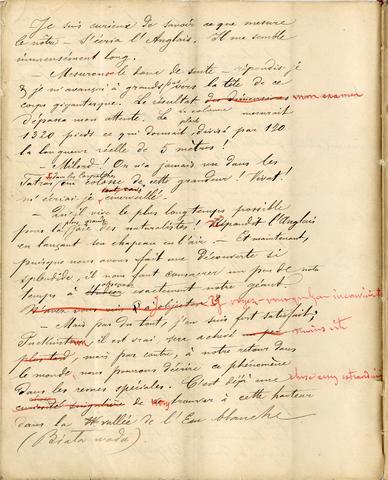 Je suis curieux de savoir ce que mesure
le nôtre – s'écria l'Anglais. Il me semble
immensément long.
– Mesurons-le donc de suite – répondis-je
& je m'avançai à grands pas vers la tête de ce
corps gigantesque. Le résultat des dimensions mon examen
dépassa mon attente. La colonne mesurait
1320 pieds ce qui donnait, divisé par 120
la longueur réelle de 5 mètres!
– Milord! On n'a jamais vu dans les
Tatras, ou dans les Carpathes colosse de cette grandeur! Vivat!
m'écriai-je émerveillé.
– Qu'il vive le plus longtemps possible
pour la plus grande joie des naturalistes! Répondit l'Anglais
en lançant son chapeau en l'air – Et maintenant,
puisque nous avons fait une découverte si
splendide, il nous faut consacrer un peu de notre
temps à observer exactement notre géant.
N'avez vous
– Mais pas du tout, j'en suis fort satisfait;
il est vrai, sera achevé un peu moins vite
plus tard, mais par contre, à notre retour dans
le monde, nous pourrons décrire ce phénomène
dans les revues spéciales. C'est déjà une chose assez
curiosité singulière de trouver à cette hauteur
dans la vallée de l'Eau blanche
(Biała woda)